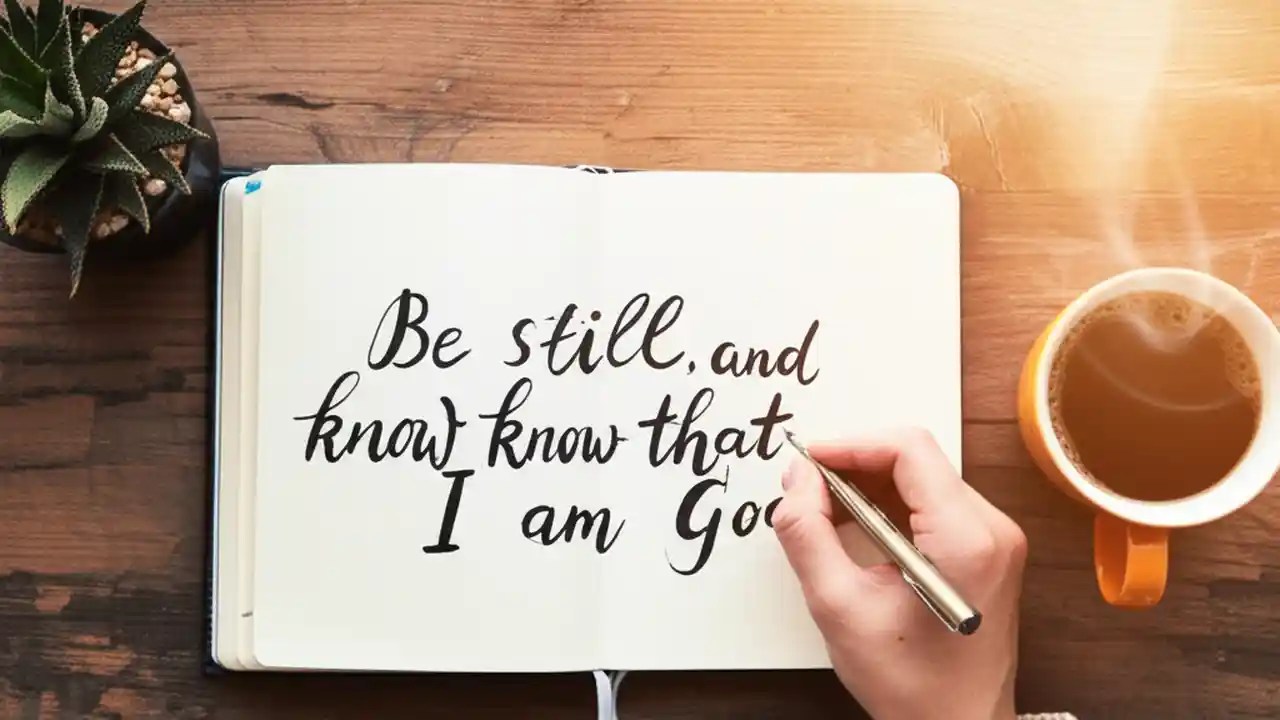 Be still, and
know know that
I am Go